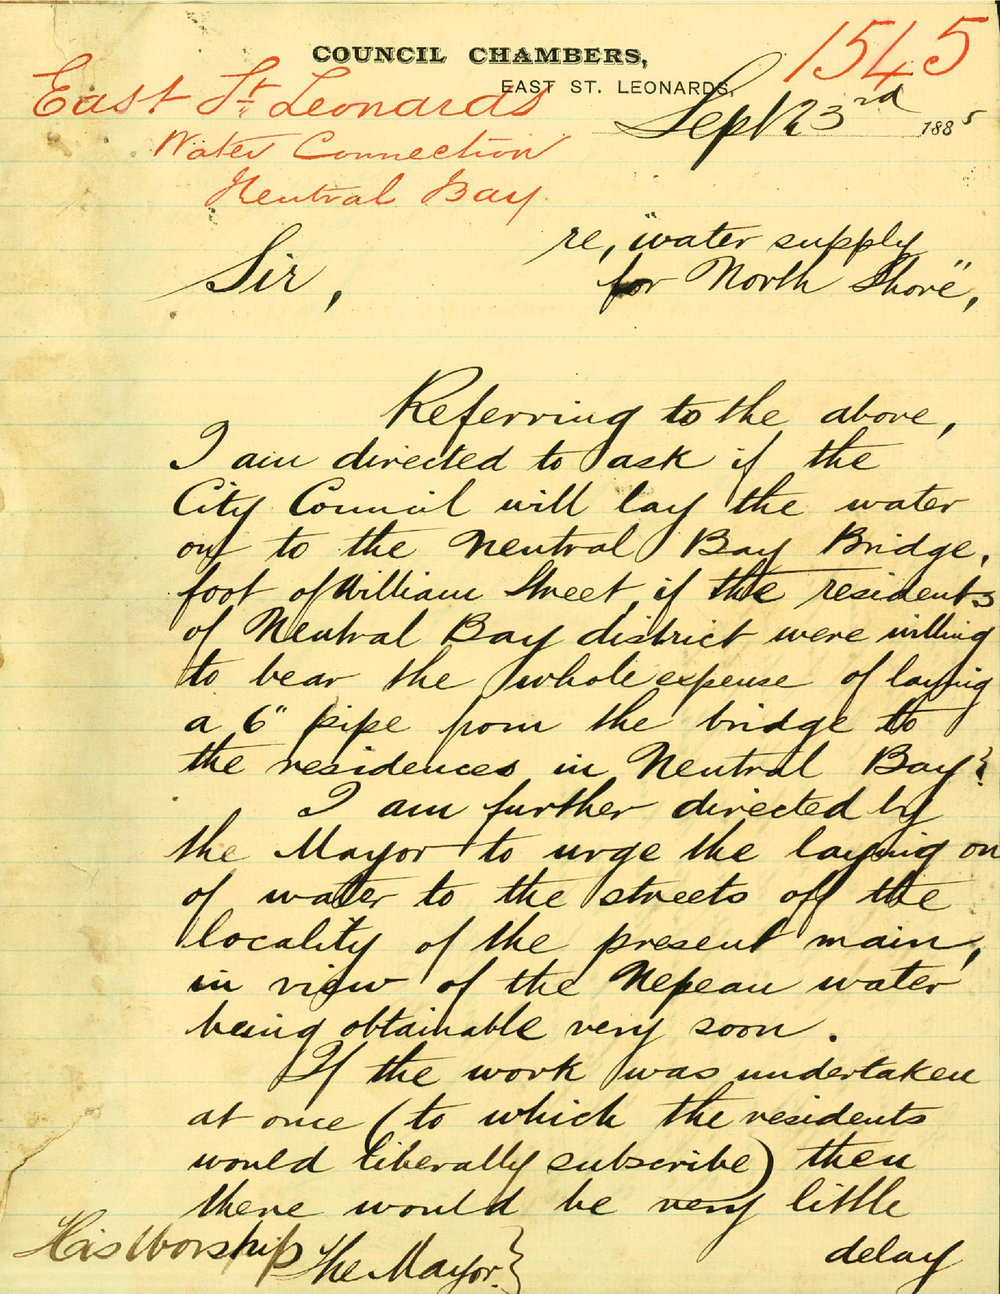 1545
COUNCIL CHAMBERS,
EAST ST. LEONARDS,
East St. Leonards
Sept 23rd 1885
Water Connection
Neutral Bay
re, "water supply
for North Shore",
Sir,
Referring to the above,
I am directed to ask if the
City Council will lay the water
on to the Neutral Bay Bridge,
foot of William Street, if the residents
of Neutral Bay district were willing
to bear the whole expense of laying
a 6" pipe from the bridge to
the residences in Neutral Bay?
I am further directed by
the Mayor to urge the laying on
of water to the streets off the
locality of the present main,
in view of the Nepean water
being obtainable very soon.
If the work was undertaken
at once (to which the residents
would liberally subscribe) then
there would be very little
delay
His Worship
The Mayor }